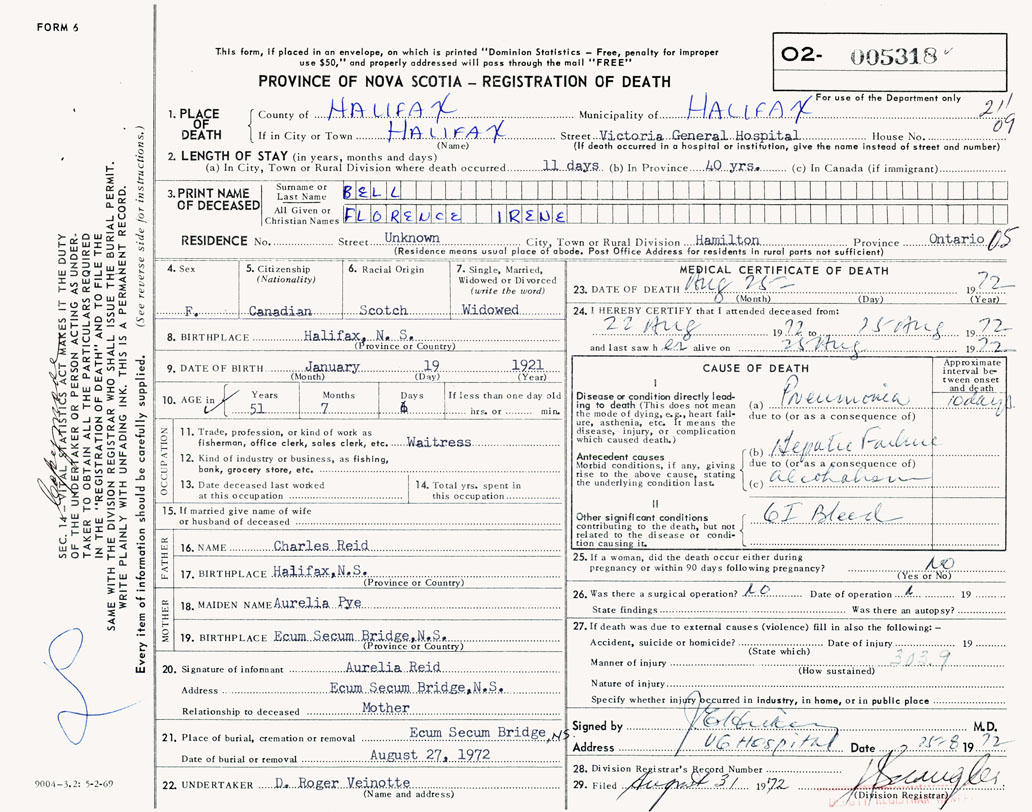 FORM 6
This form, if placed in an envelope, on which is printed "Dominion Statistics – Free, penalty for improper
use $50," and properly addressed will pass through the mail "FREE"
PROVINCE OF NOVA SCOTIA – REGISTRATION OF DEATH
02- 005318
For use of the Department only
211
09
1. PLACE OF DEATH
County of HALIFAX Municipality of HALIFAX
If in City or Town HALIFAX Street Victoria General Hospital House No.
(Name) (If death occurred in a hospital or institution, give the name instead of street and number)
2. LENGTH OF STAY (in years, months and days)
(a) In City, Town or Rural Division where death occurred 11 days (b) In Province 40 yrs. (c) In Canada (if immigrant)
3. PRINT NAME OF DECEASED
Surname or Last Name BELL
All Given or Christian Names FLORENCE IRENE
RESIDENCE No. Street Unknown City, Town or Rural Division Hamilton Province Ontario 05
(Residence means usual place of abode. Post Office Address for residents in rural parts not sufficient)
4. Sex F.
5. Citizenship (Nationality) Canadian
6. Racial Origin Scotch
7. Single, Married, Widowed or Divorced (write the word) Widowed
8. BIRTHPLACE Halifax, N. S.
(Province or Country)
9. DATE OF BIRTH January 19 1921
(Month) (Day) (Year)
10. AGE in Years Months Days If less than one day old
51 7 6 hrs. or min.
OCCUPATION
11. Trade, profession, or kind of work as
fisherman, office clerk, sales clerk, etc. Waitress
12. Kind of industry or business, as fishing,
bank, grocery store, etc.
13. Date deceased last worked
at this occupation
14. Total yrs. spent in
this occupation
15. If married give name of wife
or husband of deceased
FATHER
16. NAME Charles Reid
17. BIRTHPLACE Halifax, N.S.
(Province or Country)
MOTHER
18. MAIDEN NAME Aurelia Pye
19. BIRTHPLACE Ecum Secum Bridge, N.S.
(Province or Country)
20. Signature of informant Aurelia Reid
Address Ecum Secum Bridge, N.S.
Relationship to deceased Mother
21. Place of burial, cremation or removal Ecum Secum Bridge, NS.
Date of burial or removal August 27, 1972
22. UNDERTAKER D. Roger Veinotte
(Name and address)
MEDICAL CERTIFICATE OF DEATH
23. DATE OF DEATH Aug 25 1972
(Month) (Day) (Year)
24. I HEREBY CERTIFY that I attended deceased from:
22 Aug 1972 to 25 Aug 1972
and last saw her alive on 25 Aug 1972
CAUSE OF DEATH
Approximate interval between onset and death
I
Disease or condition directly lead-
ing to death (This does not mean
the mode of dying, e.g., heart fail-
ure, asthenia, etc. It means the
disease, injury, or complication
which caused death.)
(a) Pneumonia 10 days
due to (or as a consequence of)
Antecedent causes
Morbid conditions, if any, giving
rise to the above cause, stating
the underlying condition last.
(b) Hepatic Failure
due to (or as a consequence of)
(c) alcoholism
II
Other significant conditions
contributing to the death, but not
related to the disease or condi-
tion causing it.
GI Bleed
25. If a woman, did the death occur either during
pregnancy or within 90 days following pregnancy? NO
(Yes or No)
26. Was there a surgical operation? NO Date of operation 19
State findings Was there an autopsy?
27. If death was due to external causes (violence) fill in also the following: –
Accident, suicide or homicide? Date of injury 19
(State which)
303.9
Manner of injury
(How sustained)
Nature of injury
Specify whether injury occurred in industry, in home, or in public place
Signed by M.D.
Address VG HOSPITAL Date 25-8 1972
28. Division Registrar's Record Number
29. Filed August 31 1972
(Division Registrar)
SEC. 14 – VITAL STATISTICS ACT MAKES IT THE DUTY
OF THE UNDERTAKER OR PERSON ACTING AS UNDER-
TAKER TO OBTAIN ALL THE PARTICULARS REQUIRED
IN THE "REGISTRATION OF DEATH" AND TO FILE THE
SAME WITH THE DIVISION REGISTRAR WHO SHALL ISSUE THE BURIAL PERMIT.
WRITE PLAINLY WITH UNFADING INK. THIS IS A PERMANENT RECORD.
Every item of information should be carefully supplied. (See reverse side for instructions.)
9004-3.2: 5-2-69